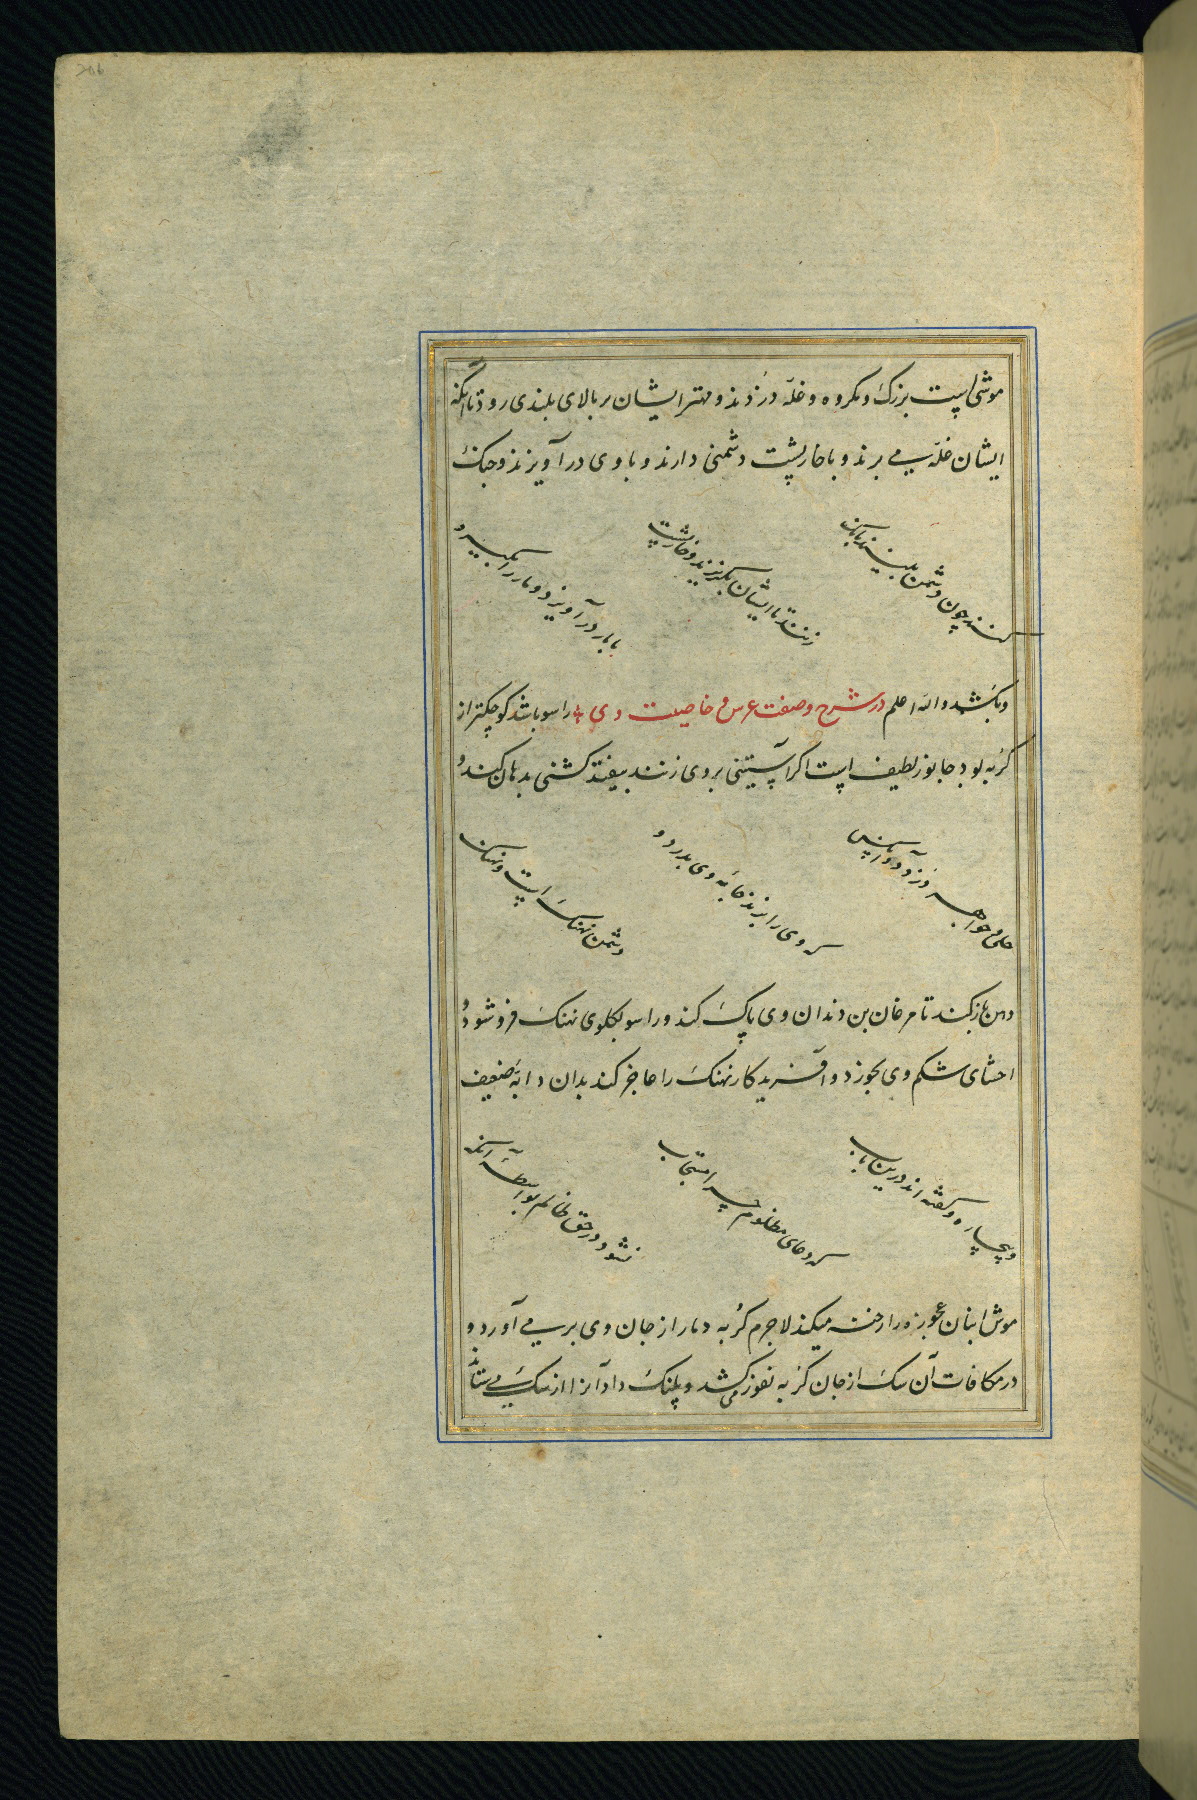 موشی است بزرگ و مکروه و غله دزدند و مهتر ایشان بر بالای بلندی رود تا آنکه
ایشان غله می برند و با خارپشت دشمنی دارند و با وی درآویزند و جنک
کنند چون دشمن ببینند بانک
زنند تا ایشان بگریزند و خارپشت
با مار درآویزد و مار را بگیرد و
بکشد والله اعلم در شرح وصفت عرس و خاصیت وی راسو باشد کوچکتر از
کربه بود جانور لطیف است اگر آستینی بروی زنند بیفتد کشنی بدهان کند و
حلی و جواهر دزدد و از پس
که وی را برند خایه وی بدرد و
دشمن نهنک است و نهنک
دهن باز کند تا مرغان بن دندان وی پاک کند و راسو بکلوی نهنک فرو شود و
احشای شکم وی بخورد و آفریدکار نهنک را عاجز کند بدان دابه ضعیف
و بیچاره و گفته اند در این باب
که دعای مظلوم چرا مستجاب
نشود در حق ظالم بواسطه آنکه
موش انبان عجوزه را رخنه میکند لاجرم کربه دمار از جان وی بر می آورد و
در مکافات آن سک از جان کربه نفوز می کشد و پلنک داد آنرا از سک می ستاند